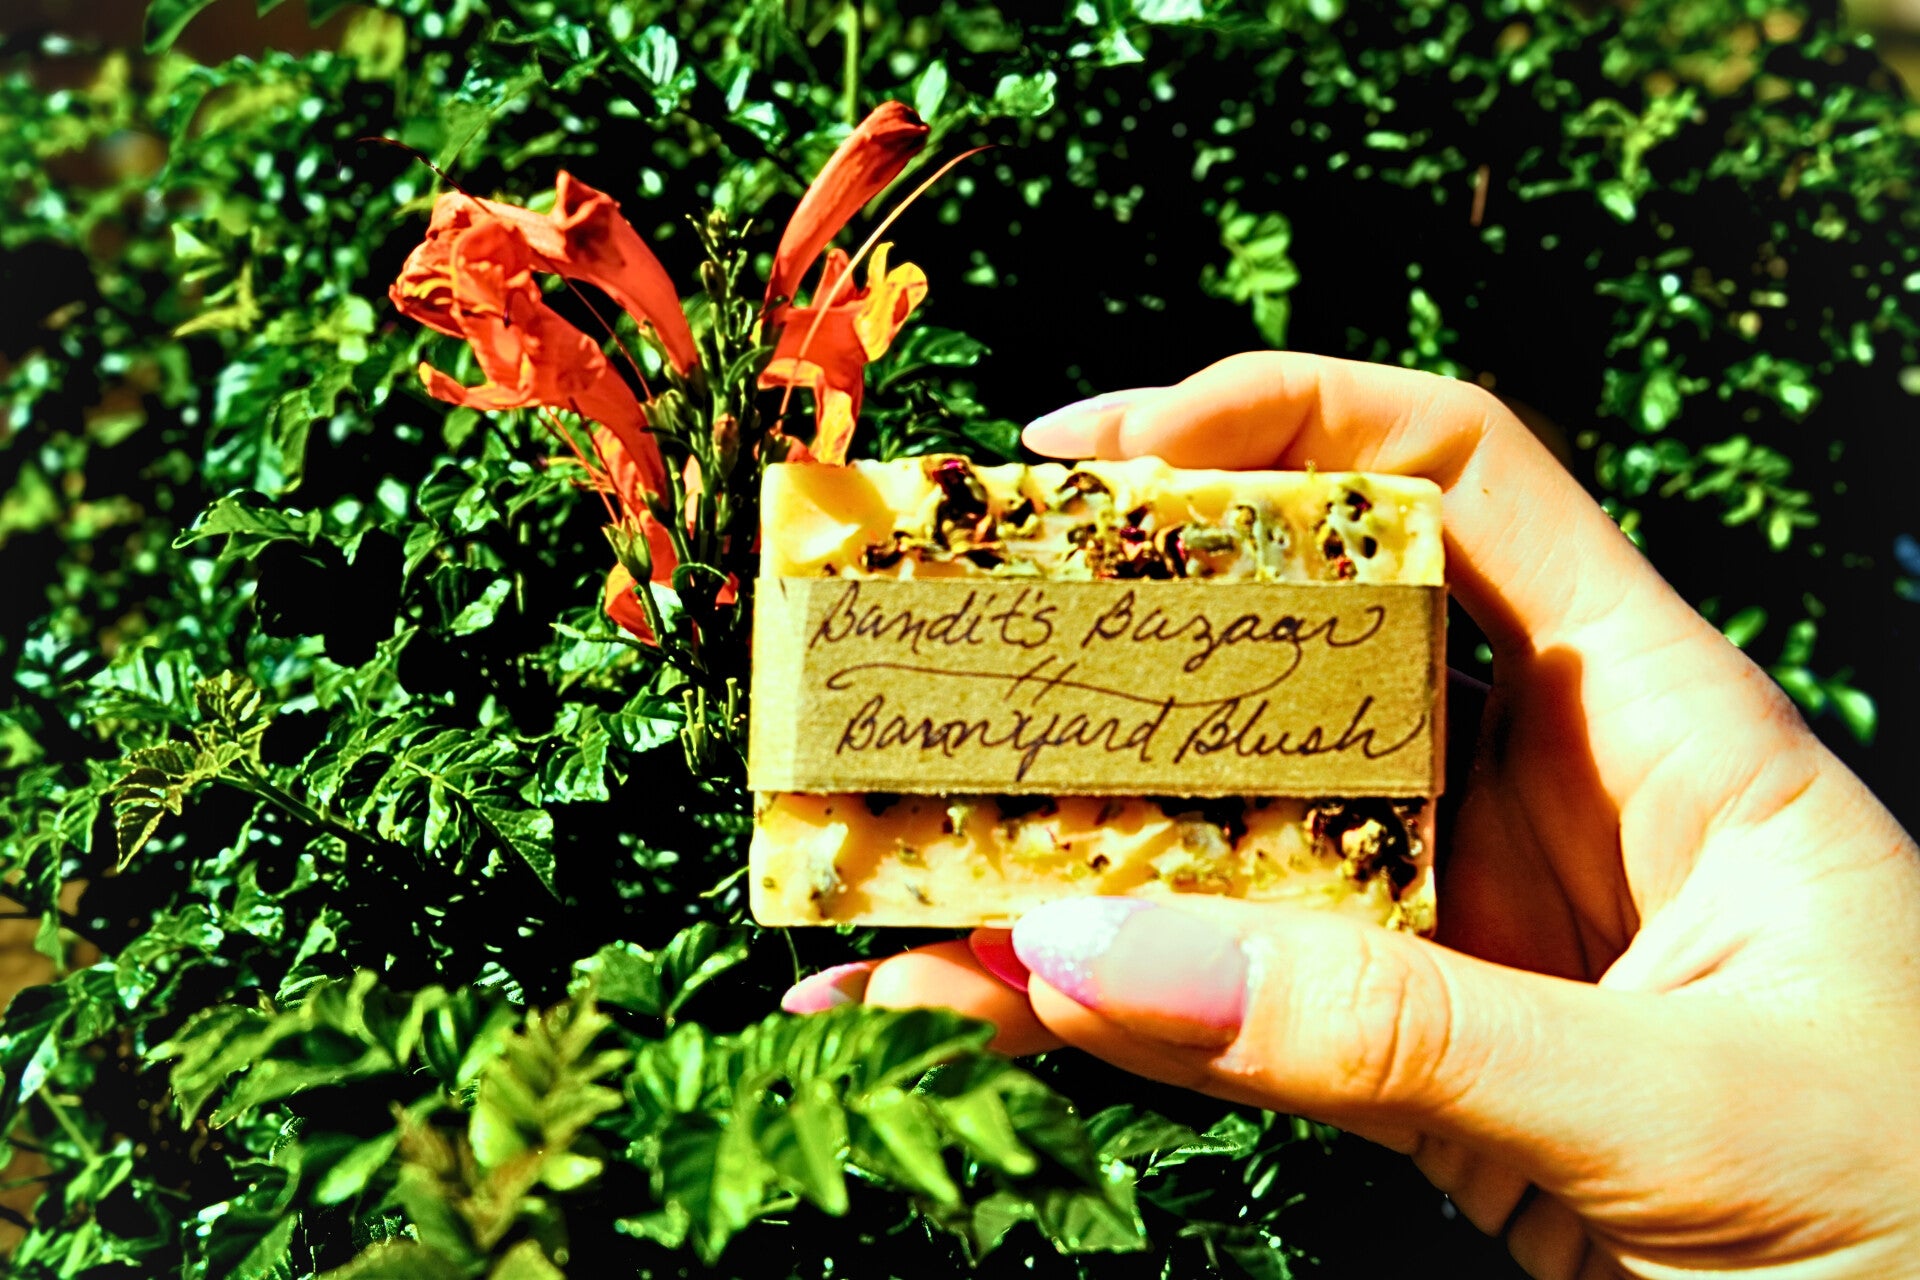 Bandit's Bazaar
Barnyard Blush